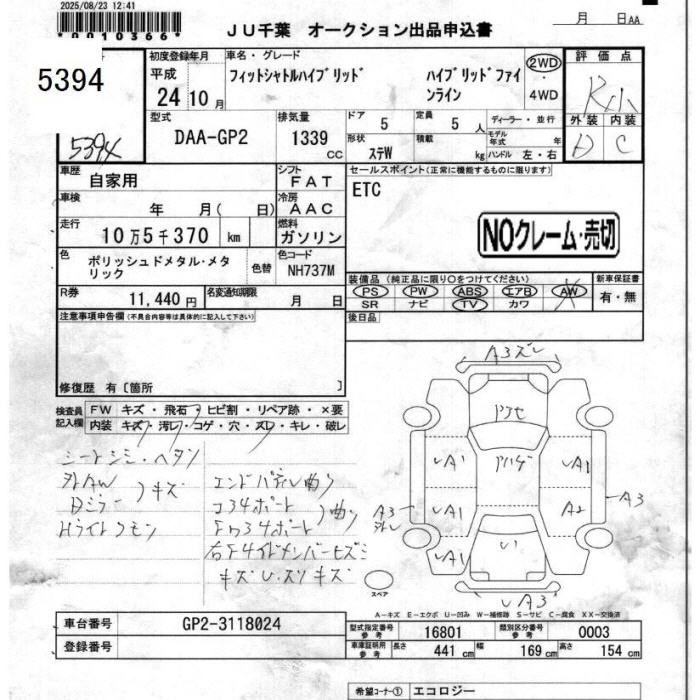 2025/08/23 12:41
0010366
JU千葉 オークション出品申込書
月 日AA
5394
5394
初度登録年月
平成
24年10月
車名・グレード
フィットシャトルハイブリッド
ハイブリッドファインライン
2WD
・
4WD
評価点
外装 内装
D C
型式
DAA-GP2
排気量
1339
cc
ドア 5
定員 5人
ディーラー・並行
モデル年式 年
形状 ステW
積載 kg
ハンドル 左・右
車歴
自家用
シフト
FAT
セールスポイント(正常に機能するものに限ります)
ETC
車検
年 月( 日)
冷房
AAC
走行
10万5千370 km
燃料
ガソリン
NOクレーム・売切
色
ポリッシュドメタル・メタリック
色替
色コード
NH737M
装備品(純正品に限り○をつけてください)
PS PW ABS エアB AW
SR ナビ TV カワ
新車保証書
有・無
R券
11,440円
名変通知期限
月 日
後日品
注意事項申告欄(不具合内容等は具体的に記入して下さい)
修復歴 有〔箇所 〕
検査員記入欄
FW キズ・飛石・ヒビ割・リペア跡・×要
内装 キズ・汚レ・コゲ・穴・スレ・キレ・破レ
シートシミ・ヘタシ
外AW
Dミラー
)キズ
Hライトクモリ
エンドパネル曲り
コ34ポート
)曲り
キズU・スリキズ
A3ズレ
UA1
UA1
UA1
A2
A3
A3
外レ
UA3
スペア
A−キズ E−エクボ U−凹み W−補修跡 S−サビ C−腐食 XX−交換済
車台番号
GP2-3118024
登録番号
型式指定番号 参考
16801
類別区分番号 参考
0003
車庫証明用 参考
長さ 441 cm
幅 169 cm
高さ 154 cm
希望コーナー① エコロジー